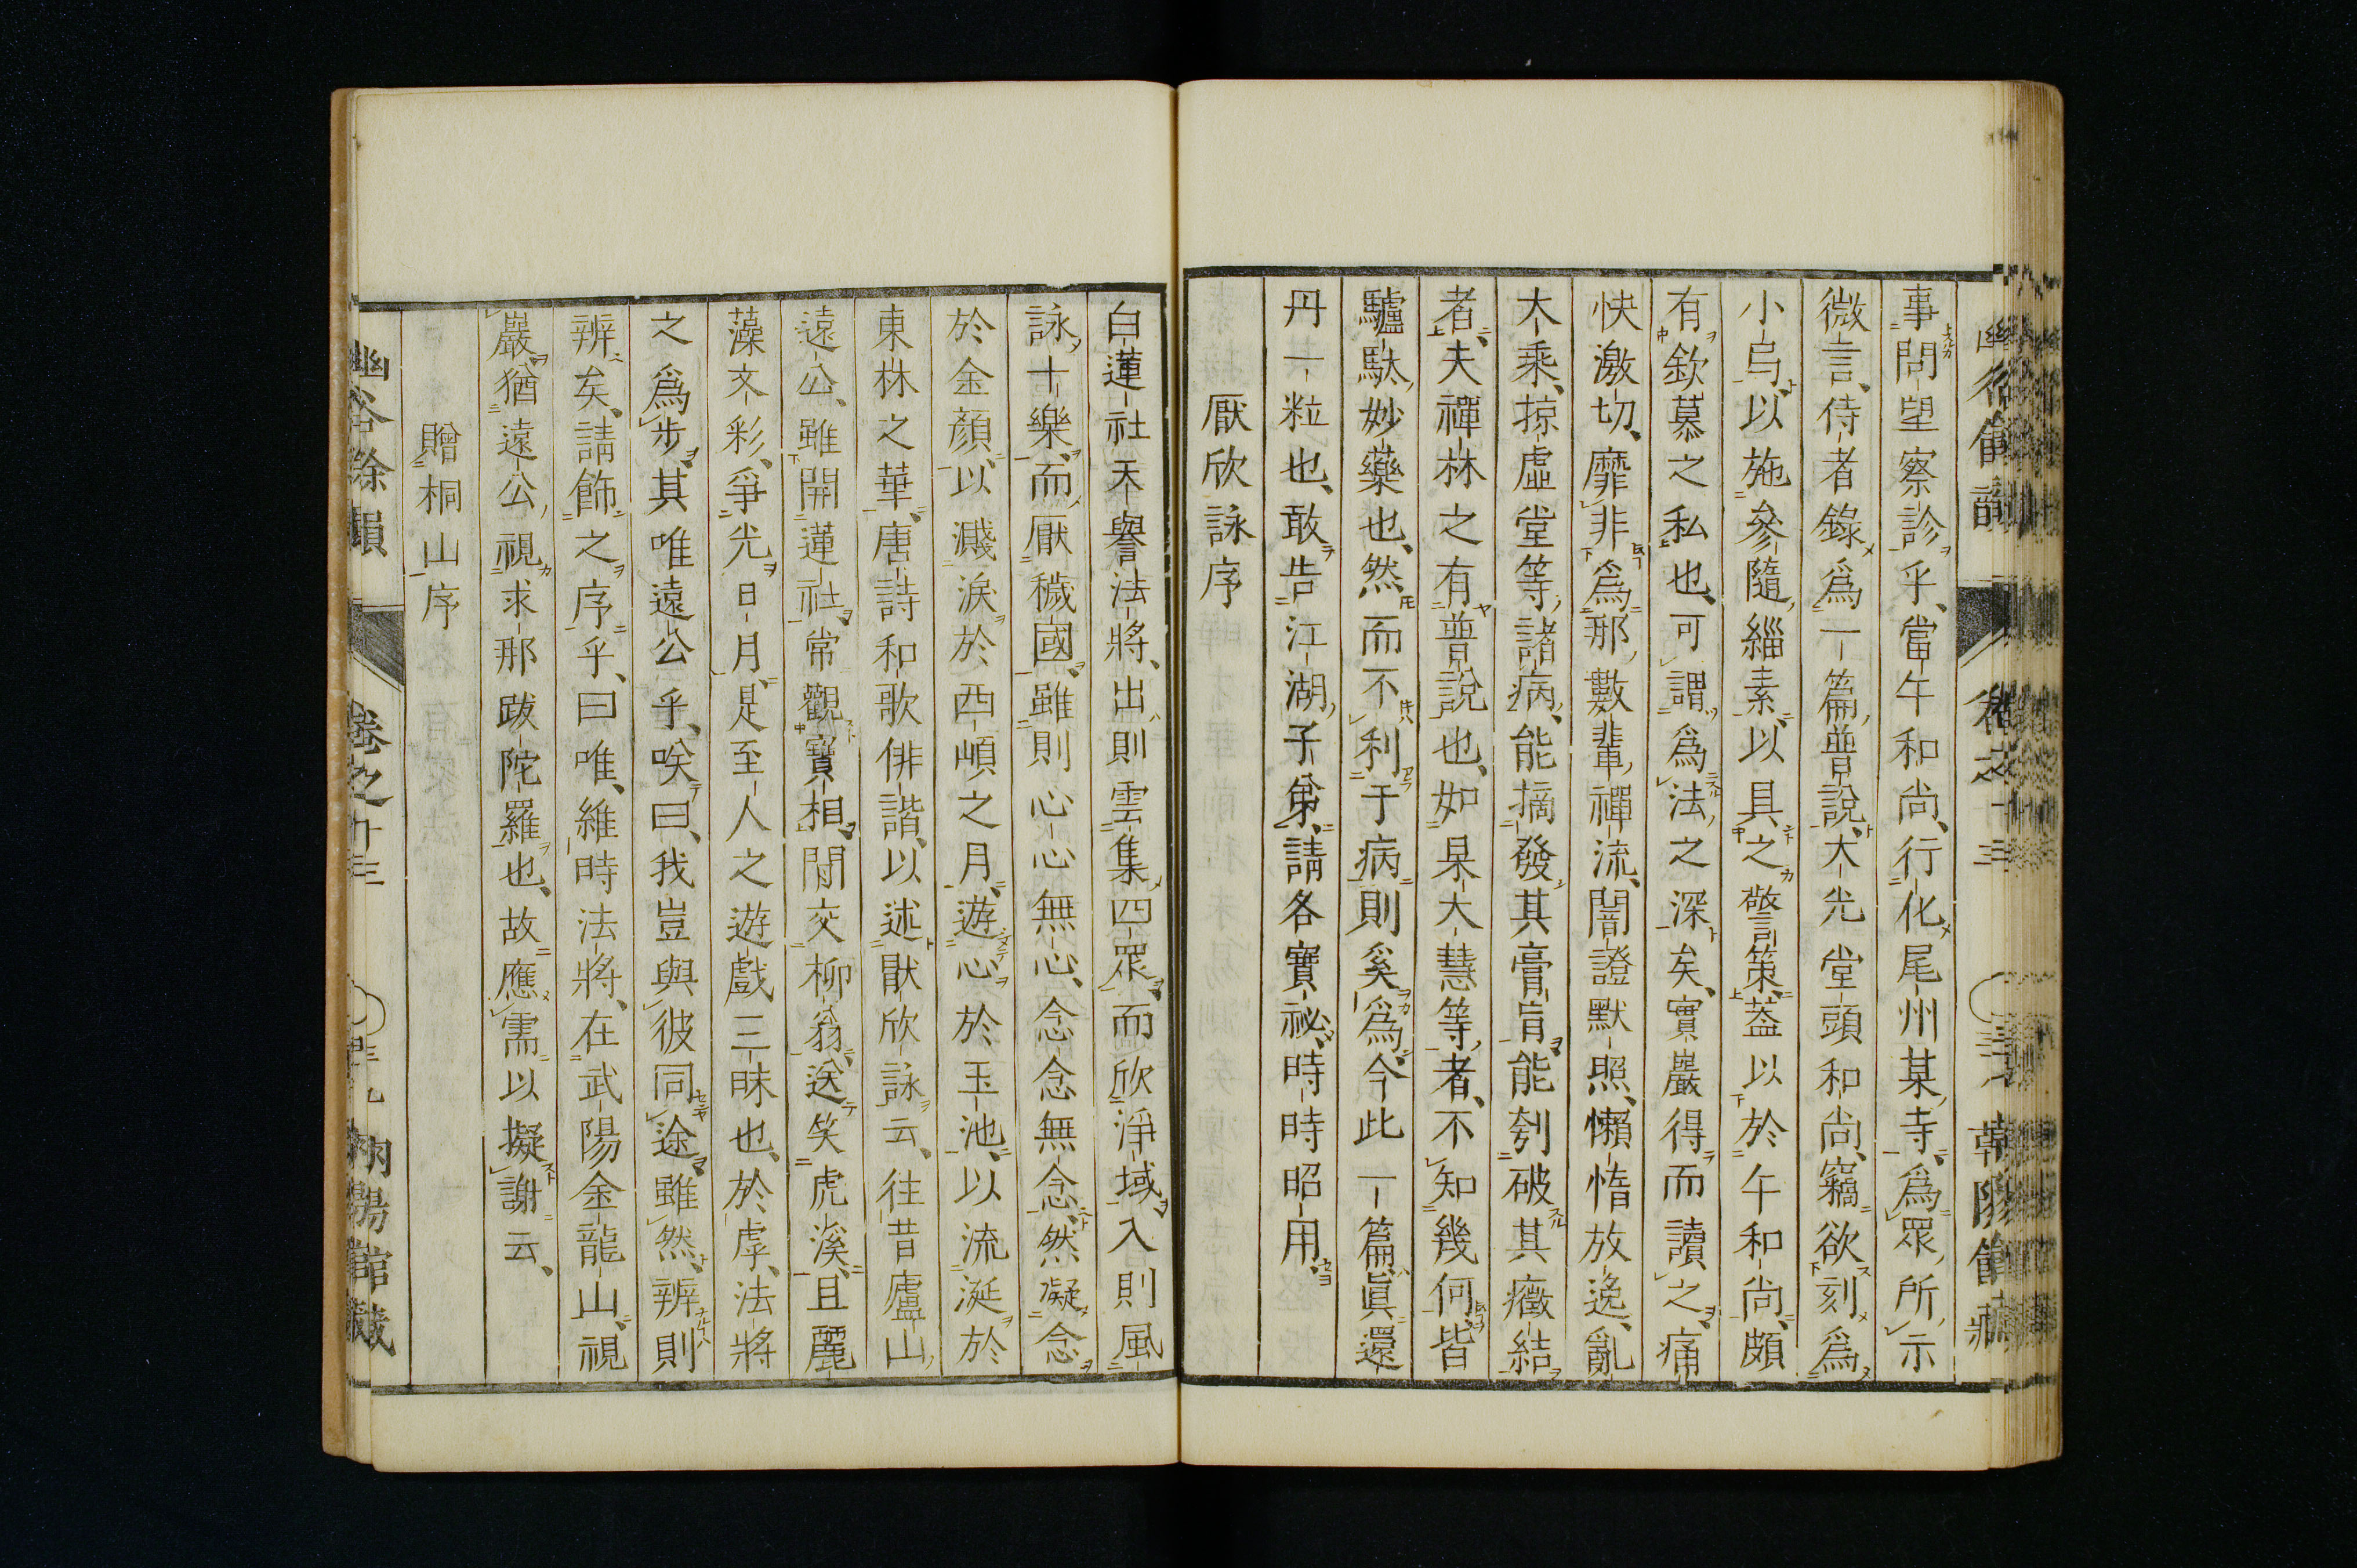 事問望察診乎、當午和尚、行化尾州某寺、爲眾所示
微言、侍者錄爲一篇、普說、大光堂頭和尚、竊欲刻爲
小烏、以施參隨緇素、以具之警策、蓋以於午和尚、頗
有欽慕之私也、可謂爲法之深矣、實巖得而讀之、痛
快激切、靡非爲那數輩、禪流、闇證默照、懶惰放逸、亂
大乘、掠虛堂等、諸病、能摘發其膏肓、能刳破其癥結
者、夫禪林之有普說也、如杲大慧等者、不知幾何、皆
驢馱妙藥也、然而不利于病則奚爲、今此一篇、眞還
丹一粒也、敢告江湖子弟、請各寶祕、時時昭用、
厭欣詠序
白蓮社天譽法將、出則雲集四眾、而欣淨域、入則風
詠十樂、而厭穢國、雖則心心無心、念念無念、然凝念
於金顏、以濺淚於西嵮之月、遊心於玉池、以流涎於
東林之華、唐詩和歌俳諧、以述厭欣詠云、往昔廬山
遠公、雖開蓮社、常觀寶相、間交柳翁、送笑虎溪、且麗
藻文彩、爭光日月、是至人之遊戲三昧也、於虖、法將
之爲步、其唯遠公乎、唉曰、我豈與彼同途、雖然、辨則
辨矣、請飾之序乎、曰唯、維時法將、在武陽金龍山、視
巖猶遠公、視求那跋陀羅也、故應需以擬謝云、
贈桐山序
幽谷餘韻 卷之十三 朝陽館藏